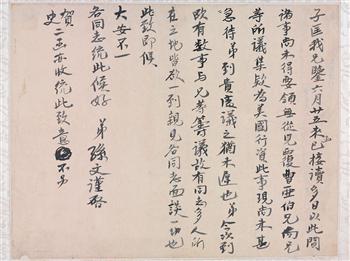 子匡我兄鑒六月廿五來已接讀多日以此間
諸事尚未得要領無從見覆曹亞伯兄與兄
等所議集款為美國行資此事現尚未甚
急待弟到貴處議之猶未遲也弟今次到
歐有數事与兄等籌議故有同志多人所
在之地皆欲一到親見各同志面談一切也
此致即候
大安不一
各同志統此候好 弟孫文謹啓
賀
史二函亦收統此致意 不另